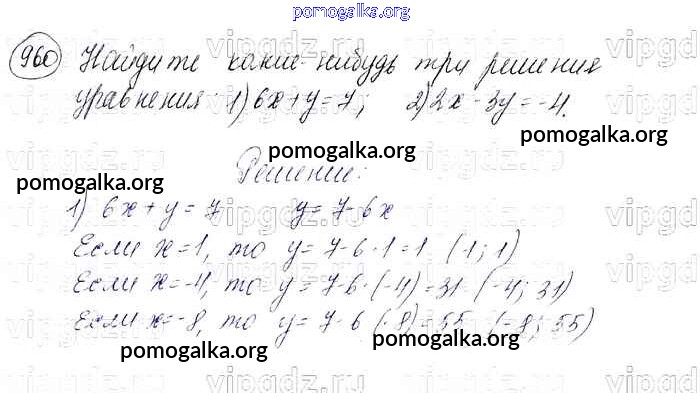 pomogalka.org
960 Найдите какие-нибудь три решения
уравнения: 1) 6x+y=7; 2) 2x-3y=-4.
pomogalka.org
pomogalka.org
Решение:
pomogalka.org
1) 6x+y=7 y=7-6x
Если x=1, то y=7-6·1=1 (1; 1)
Если x=-4, то y=7-6·(-4)=31 (-4; 31)
Если x=-8, то y=7-6(-8)=55 (-8; 55)
pomogalka.org
pomogalka.org